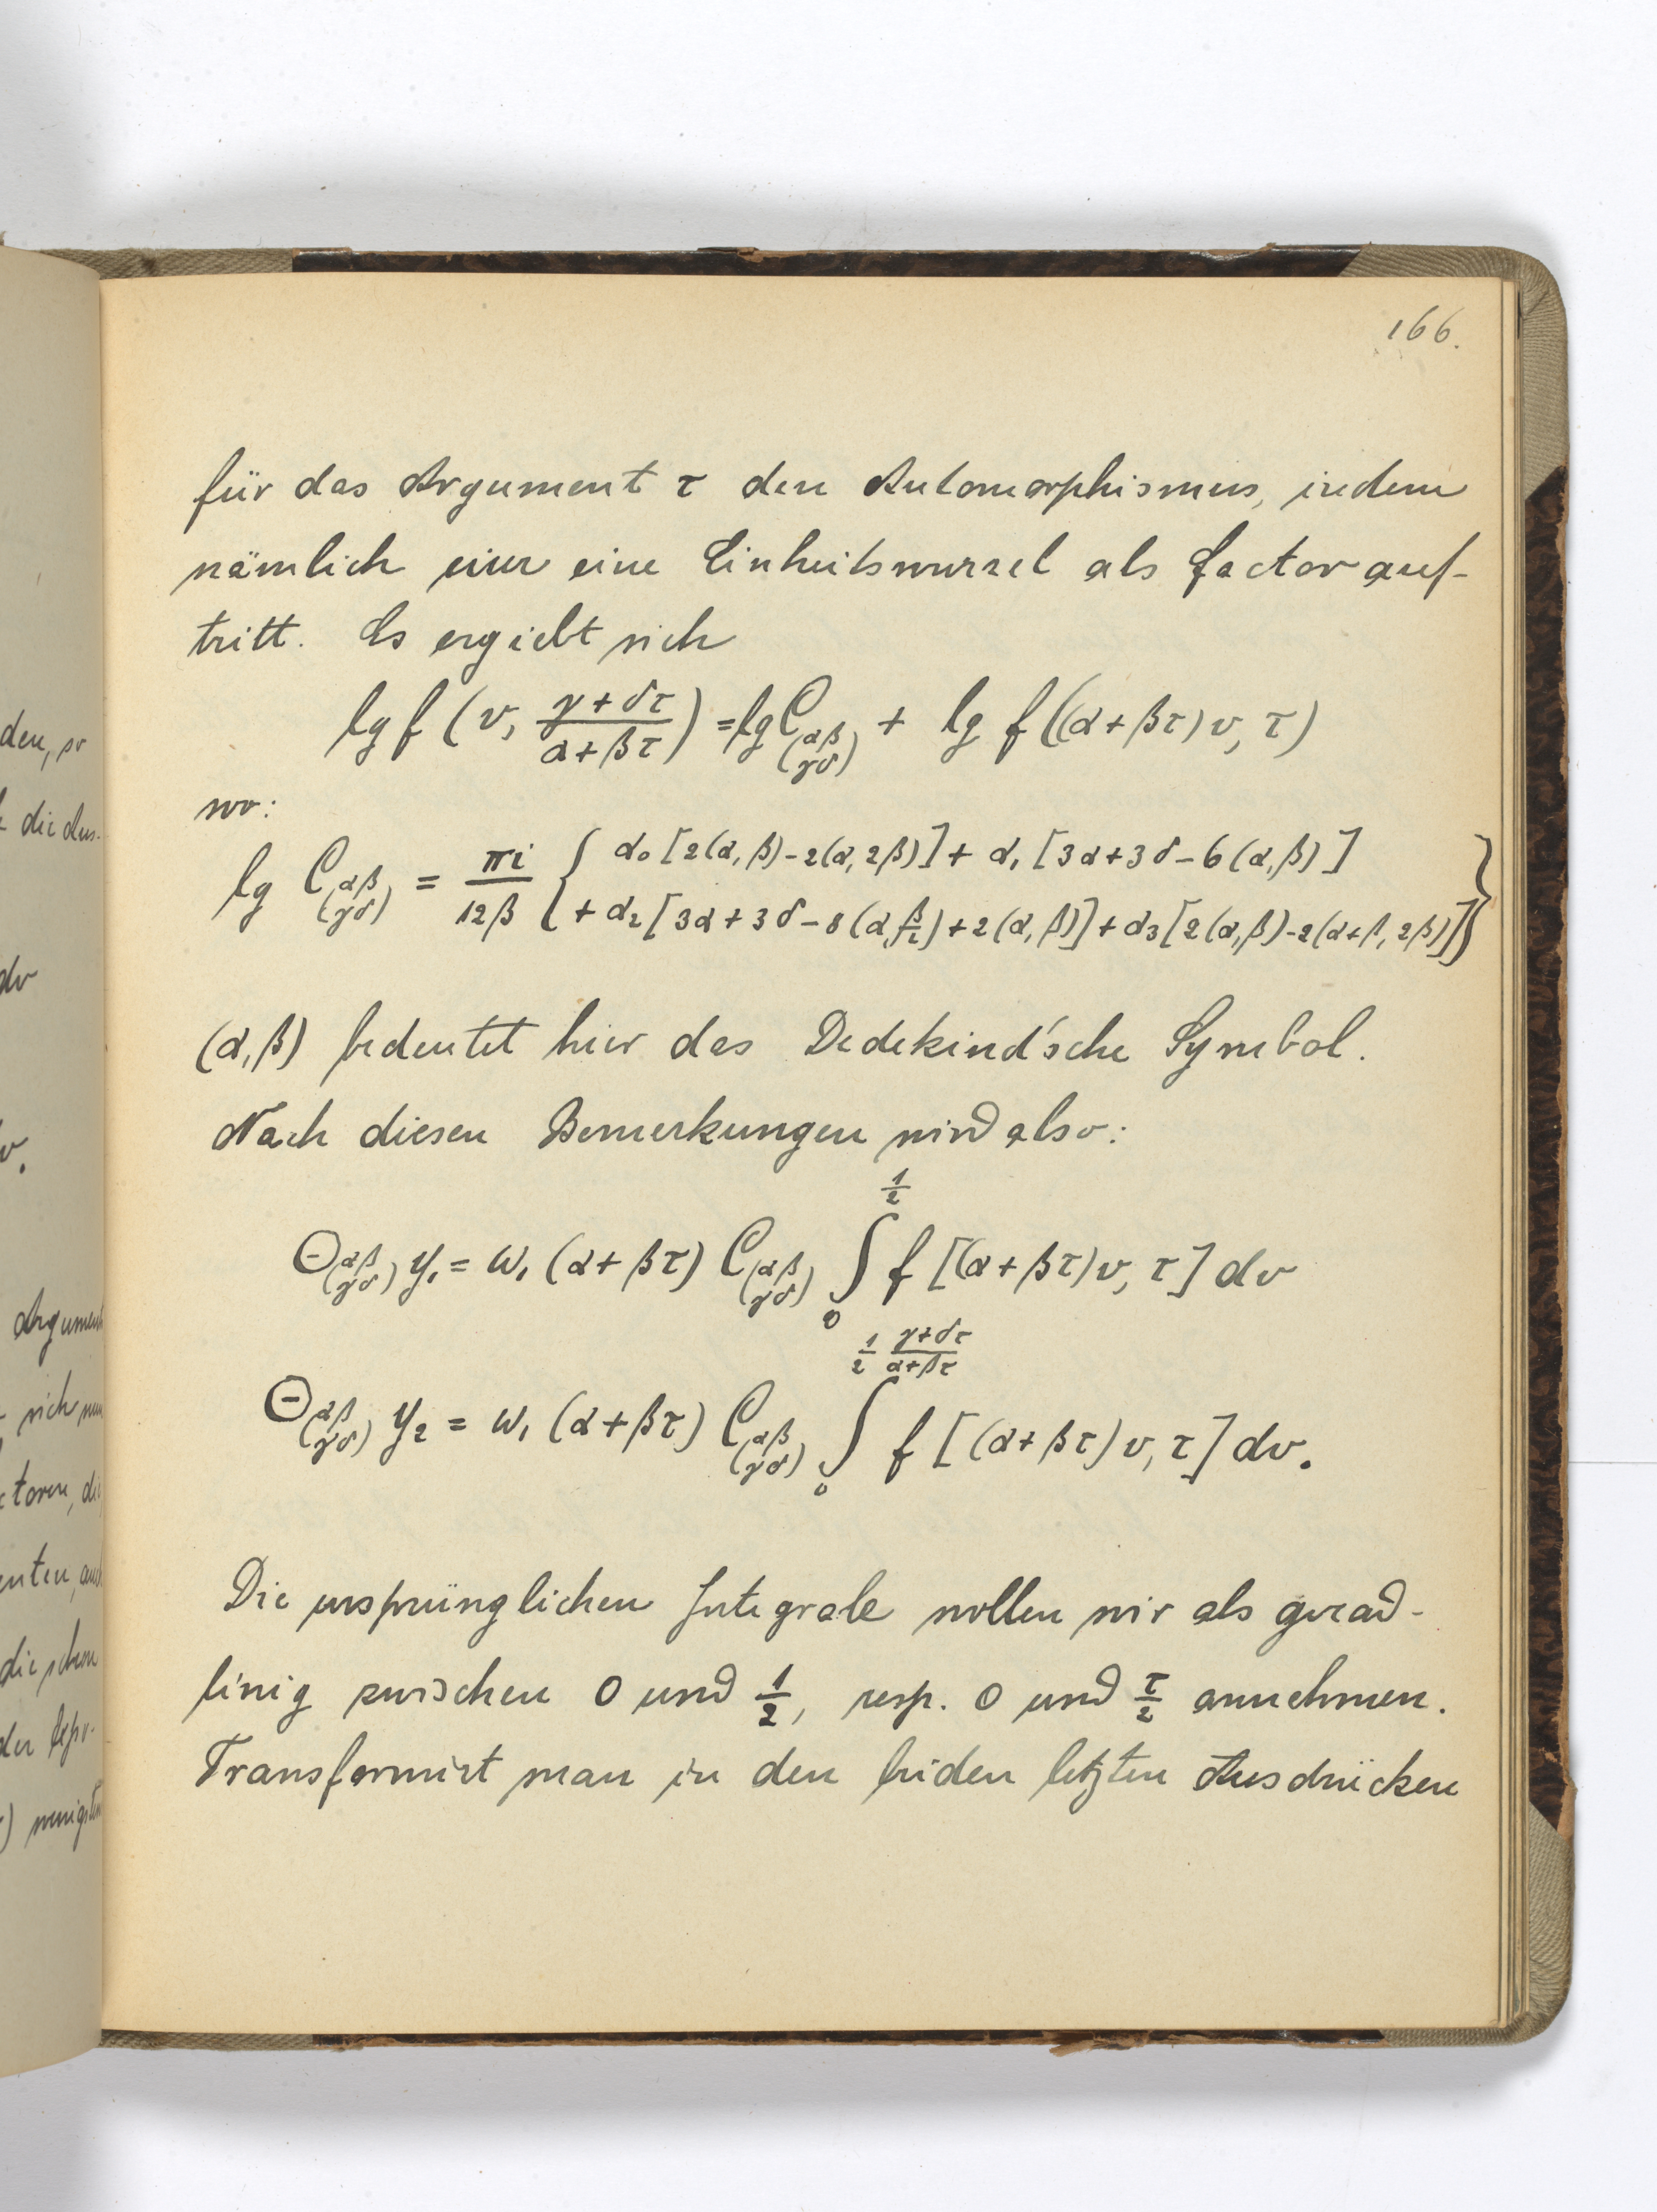 166.
für das Argument τ den Automorphismus, indem
nämlich eine Einheitswurzel als Factor auf-
tritt. Es ergiebt sich
lg f (v, (γ+δτ)/(α+βτ)) = lg C_(αβ γδ) + lg f((α+βτ)v, τ)
wo:
lg C_(αβ γδ) = πi/12β { α₀[2(α,β)-2(α,2β)] + α₁[3α+3δ-6(α,β)]
+ α₂[3α+3δ-8(α,β/2)+2(α,β)] + α₃[2(α,β)-2(α+β,2β)] }
(α,β) bedeutet hier das Dedekind'sche Symbol.
Nach diesen Bemerkungen wird also:
Θ_(αβ γδ) y₁ = ω₁ (α+βτ) C_(αβ γδ) ∫₀^(1/2) f [(α+βτ)v, τ] dv
Θ_(αβ γδ) y₂ = ω₁ (α+βτ) C_(αβ γδ) ∫₀^(1/2 (γ+δτ)/(α+βτ)) f [(α+βτ)v, τ] dv.
Die ursprünglichen Integrale wollen wir als gerad-
linig zwischen 0 und 1/2, resp. 0 und τ/2 annehmen.
Transformirt man in den beiden letzten Ausdrücken